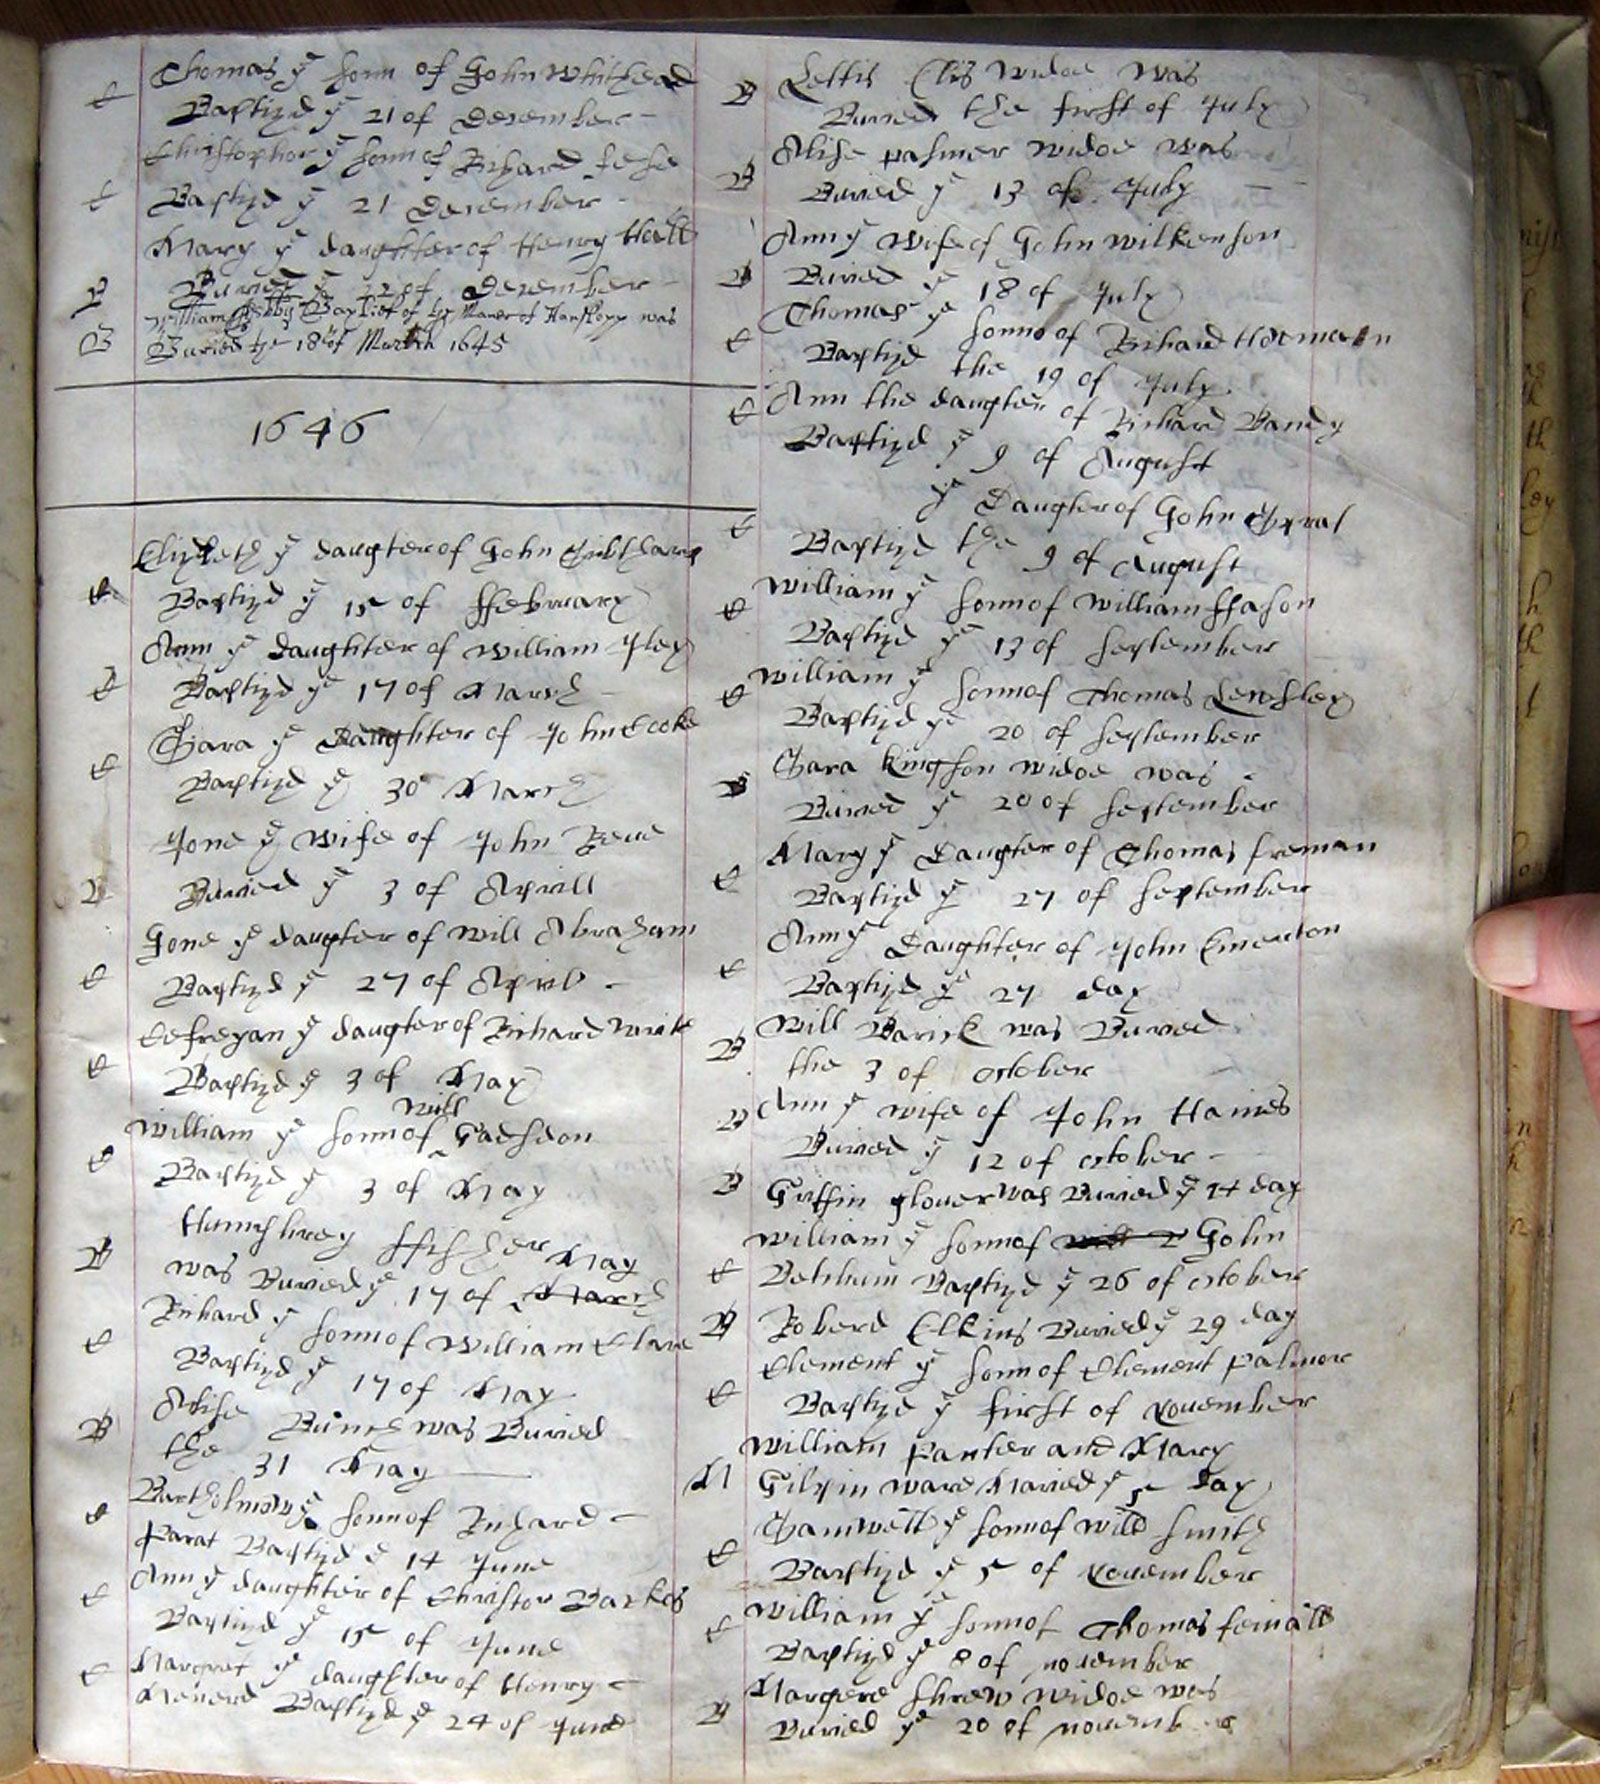 Thomas ye sonn of John Whithead
C Baptizd ye 21 of December
Christopher ye sonn of Richard
C Baptizd ye 21 December
Mary ye daughter of Henry Hall
B Buried ye 22 of December
William Baylief of ye Maner of Hanslopp was
B Buried the 18th of March 1645
1646
Elizbeth ye daugter of John
C Baptizd ye 15 of ffebruary
Ann ye daughter of William
C Baptizd ye 17 of March
Sara ye Daughter of John Cooke
C Baptizd ye 30 March
Jone ye wife of John Reue
B Buried ye 3 of Aprill
Jone ye daugter of Will Abraham
C Baptizd ye 27 of Aprill
ye daugter of Richard
C Baptizd ye 3 of May
will
William ye sonn of Gadsdon
C Baptizd ye 3 of May
Humphrey ffisher May
B was Buried ye 17 of March
Richard ye sonn of William Clare
C Baptizd ye 17 of May
Alise Bunch was Buried
B the 31 May
Bartholmew ye sonn of Richard
C Parat Baptizd ye 14 June
Ann ye daughter of Christor Barkes
C Baptizd ye 15 of June
Margret ye daughter of Henry
C Baptizd ye 24 of June
Lettis Elis widoe was
B Buried the first of July
Alise palmer widoe was
B Buried ye 13 of July
Ann ye wife of John Wilkenson
B Buried ye 18 of July
Thomas ye sonn of Richard
C Baptizd the 19 of July
Ann the daugter of Richard Bandy
C Baptizd ye 9 of August
ye Daugter of John
C Baptizd the 9 of August
William ye sonn of William
C Baptizd ye 13 of September
William ye sonn of Thomas
C Baptizd ye 20 of September
Sara Kingson widoe was
B Buried ye 20 of September
Mary ye Daugter of Thomas freman
C Baptizd ye 27 of September
Ann ye Daughter of John Emerton
C Baptizd ye 27 day
Will Barick was Buried
B the 3 of october
Ann ye wife of John Haines
B Buried ye 12 of october
B Griffin glouer was Buried ye 14 day
William ye sonn of John
C Betsham Baptizd ye 26 of october
B Roberd Elkins Buried ye 29 day
Clement ye sonn of Clement Palmor
C Baptizd ye first of Nouember
William Panter and Mary
M Gilpin ware Maried ye 5 day
Samwell ye sonn of Will Smith
C Baptizd ye 5 of Nouember
William ye sonn of Thomas
C Baptizd ye 8 of nouember
Margere shrew widoe was
B Buried ye 20 of nouember